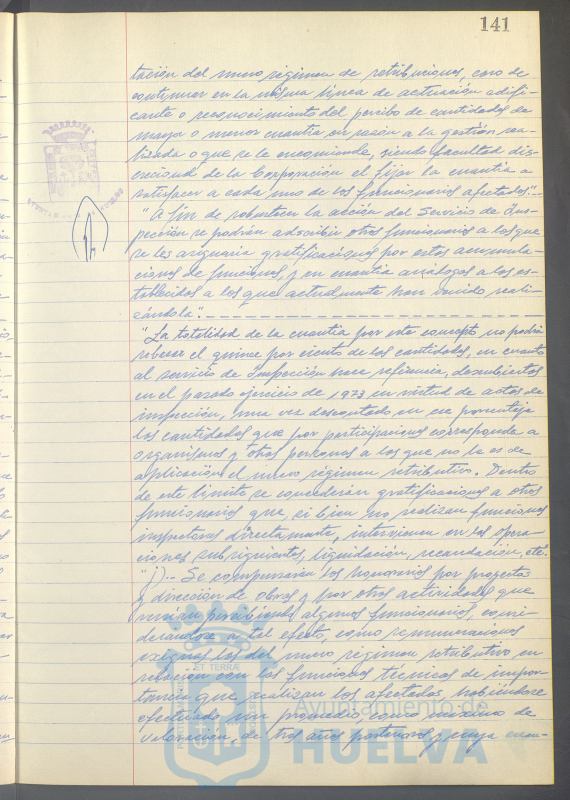 141
tación del nuevo régimen de retribuciones, caso de
continuar en la misma línea de actuación edifi-
cante o reconocimiento del percibo de cantidades de
mayor o menor cuantía en razón a la gestión rea-
lizada o que se le encomiende, siendo facultad dis-
crecional de la Corporación el fijar la cuantía a
satisfacer a cada uno de los funcionarios afectados".-
"A fin de robustecer la acción del Servicio de Ins-
pección se podrán adscribir otros funcionarios a los que
se les asignaría gratificaciones por estas acumula-
ciones de funciones, y en cuantía análogas a las es-
tablecidas a los que actualmente han venido reali-
zándola".-
"La totalidad de la cuantía por este concepto no podrá
rebasar el quince por ciento de las cantidades, en cuanto
al servicio de Inspección hace referencia, descubiertas
en el pasado ejercicio de 1973 en virtud de actas de
inspección, una vez descontado en su porcentaje
las cantidades que por participaciones corresponda a
organismos y otras personas a las que no la es de
aplicación el nuevo régimen retributivo. Dentro
de este límite se concederán gratificaciones a otros
funcionarios que, si bien no realizan funciones
inspectoras directamente, intervienen en las opera-
ciones subsiguientes, liquidación, recaudación, etc."
"j).- Se compensarán los honorarios por proyectos
y dirección de obras y por otras actividades que
venían percibiendo algunos funcionarios, consi-
derándose a tal efecto, como remuneraciones
exiguas las del nuevo régimen retributivo en
relación con las funciones técnicas de impor-
tancia que realizan los afectados, habiéndose
efectuado un promedio, como máximo de
valoración, de tres años posteriores, y cuya cuan-
ET TERRA
Ayuntamiento de
HUELVA